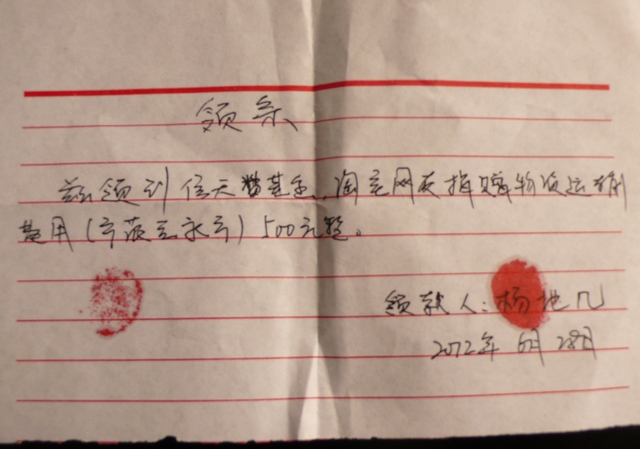 领条
兹领到信天翁基金、淘宝网友捐赠物资运输
费用(宁蒗至永宁)500元整。
领款人:杨地几
2012年6月28日